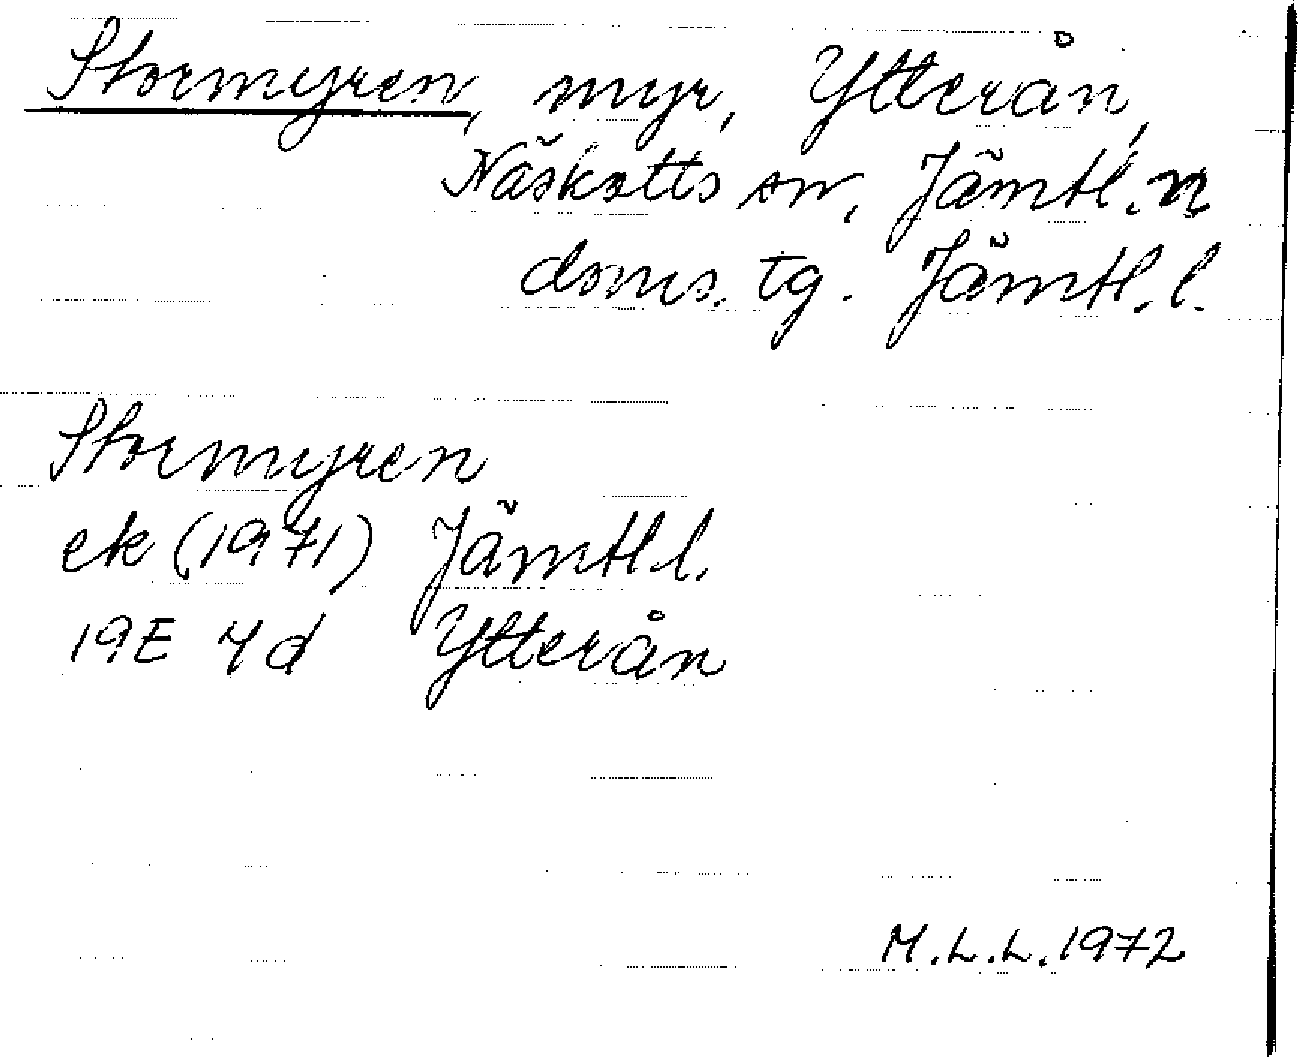 Stormyren, myr, Ytterån,
Näskotts sn, Jämtl. n
doms. tg. Jämtl. l.
Stormyren
ek (1971) Jämtl. l.
19E 4d Ytterån
M.L.L. 1972